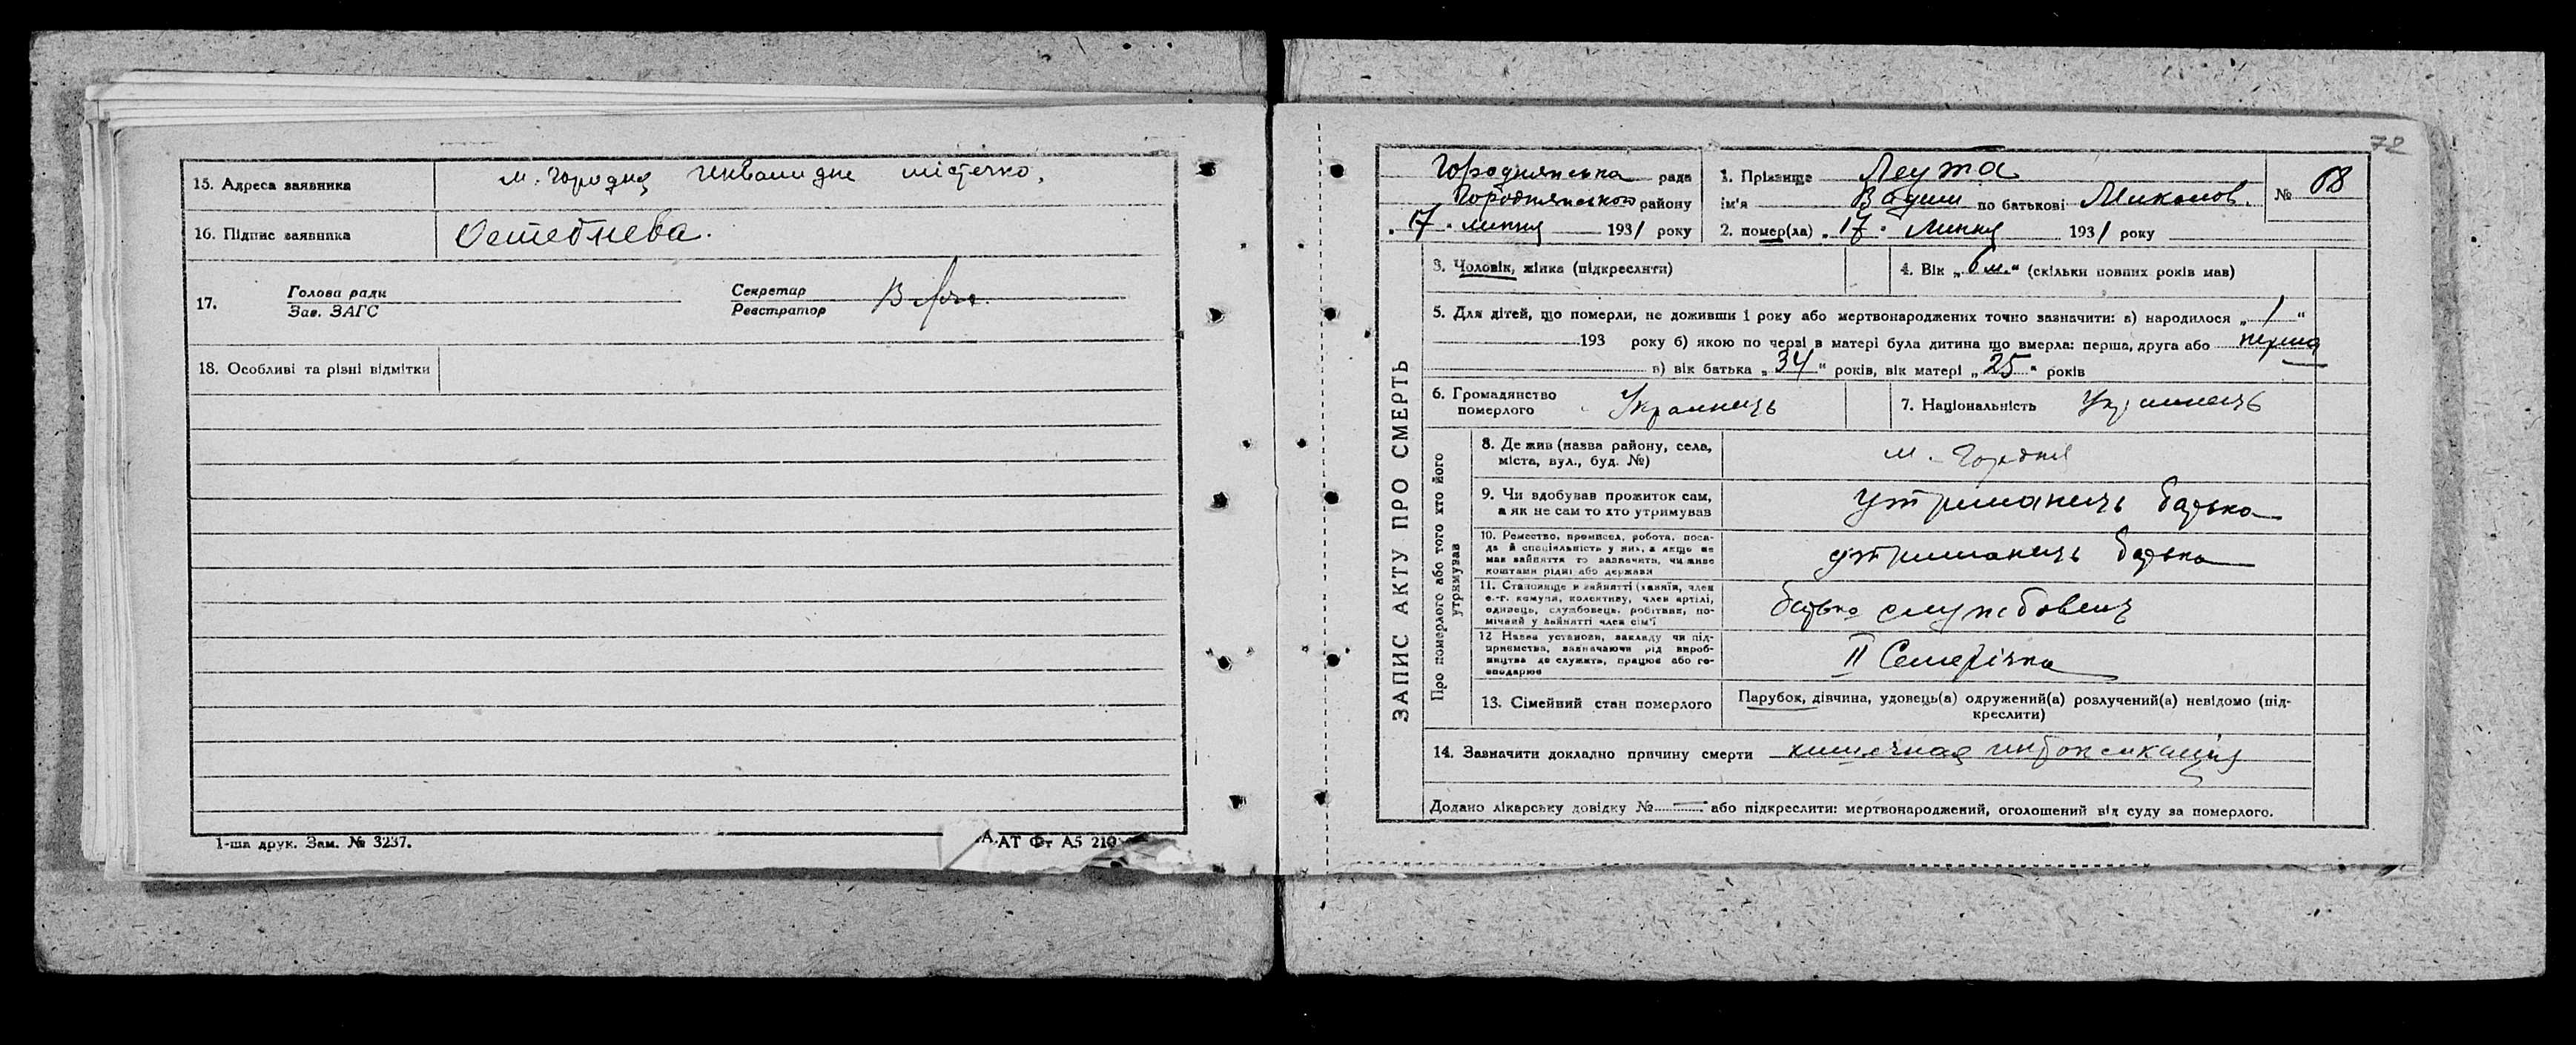 15. Адреса заявника м. Городня Інвалидне містечко.
16. Підпис заявника Остебнева.
17. Голова ради
Зав. ЗАГС
Секретар
Реєстратор
18. Особливі та різні відмітки
1-ша друк. Зам. № 3237.
АТ Фт А5 210
72
Городнянська рада
Городнянського району
„17“ липня 1931 року
1. Прізвище Леута
ім'я по батькові Миколов.
№ 68
2. помер(ла) „17“ Липня 1931 року
ЗАПИС АКТУ ПРО СМЕРТЬ
3. Чоловік, жінка (підкреслити)
4. Вік „6 м.“ (скільки повних років мав)
5. Для дітей, що померли, не доживши 1 року або мертвонароджених точно зазначити: а) народилося „1“
193 року б) якою по черзі в матері була дитина що вмерла: перша, друга або перша
в) вік батька „34“ років, вік матері „25“ років
6. Громадянство
померлого Украинець
7. Національність Украинець
Про померлого або того хто його
утримував
8. Де жив (назва району, села,
міста, вул., буд. №) м. Городня
9. Чи здобував прожиток сам,
а як не сам то хто утримував утриманець батька
10. Ремество, промисел, робота, поса-
да й спеціяльність у них, а якщо не
мав зайняття то зазначити, чи живе
коштами рідні або держави утриманець батька
11. Становище в зайнятті (хазяїн, член
с.-г. комуни, колективу, член артілі,
одинець, службовець, робітник, по-
мічний у зайнятті член сім'ї батько службовець
12 Назва установи, закладу чи під-
приємства, зазначаючи рід вироб-
ництва де служить, працює або го-
сподарює II Семирічка
13. Сімейний стан померлого Парубок, дівчина, удовець(а) одружений(а) розлучений(а) невідомо (під-
креслити)
14. Зазначити докладно причину смерти кишечная интоксикация
Додано лікарську довідку № — або підкреслити: мертвонароджений, оголошений від суду за померлого.